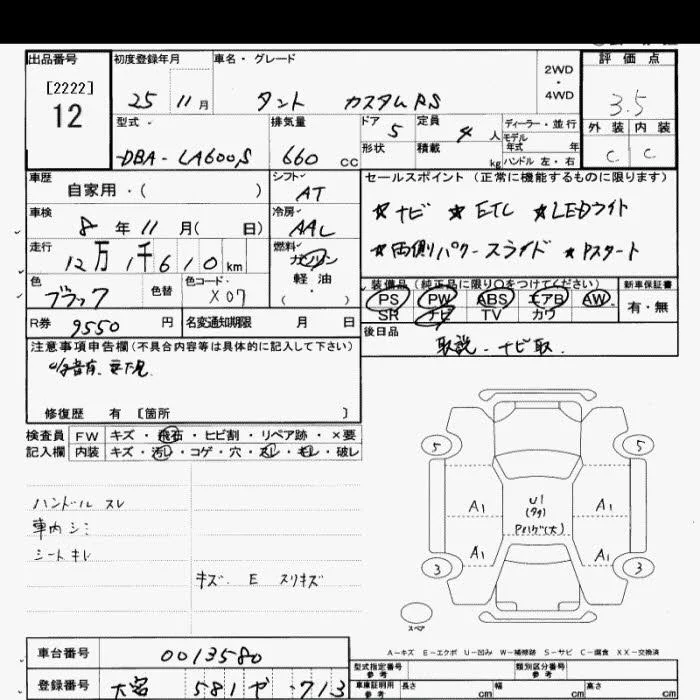 出品番号
[2222]
12
初度登録年月
25 11 月
車名・グレード
タント カスタム RS
2WD
・
4WD
評価点
3.5
外装 内装
C C
型式
DBA-LA600S
排気量
660 cc
ドア 5
定員 4 人
形状
積載 kg
ディーラー・並行
モデル
年式 年
ハンドル 左・右
車歴
自家用・( )
シフト
AT
車検
8 年 11 月( 日)
冷房
AAC
走行
12万1千610 km
燃料
ガソリン
軽油
( ・ )
色
ブラック
色替
色コード
X07
R券 9550 円
名変通知期限 月 日
セールスポイント (正常に機能するものに限ります)
★ナビ ★ETC ★LEDライト
★両側パワースライド ★Pスタート
装備品 (純正品に限り○をつけてください)
PS PW ABS エアB AW
SR ナビ TV カワ
新車保証書
有・無
後日品
取説・ナビ取
注意事項申告欄(不具合内容等は具体的に記入して下さい)
修復歴 有 [箇所 ]
検査員
記入欄
FW キズ・飛石・ヒビ割・リペア跡・×要
内装 キズ・汚レ・コゲ・穴・スレ・モレ・破レ
ハンドル スレ
車内シミ
シートキレ
キズ. E スリキズ
5 5
A1 U1 A1
A1 A1
3 3
スペア
A-キズ E-エクボ U-凹み W-補修跡 S-サビ C-腐食 XX-交換済
車台番号 0013580
登録番号 大宮 581 や 713
型式指定番号
参考
類別区分番号
参考
車庫証明用
参考
長さ cm 幅 cm 高さ cm